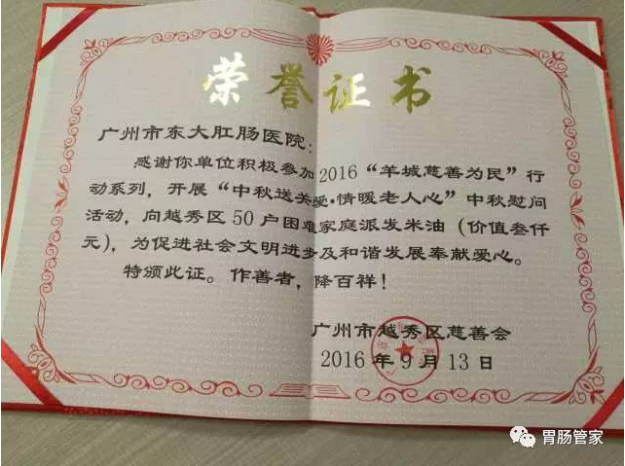 荣誉证书
广州市东大肛肠医院：
感谢你单位积极参加2016“羊城慈善为民”行
动系列，开展“中秋送关爱·情暖老人心”中秋慰问
活动，向越秀区50户困难家庭派发米油（价值叁仟
元），为促进社会文明进步及和谐发展奉献爱心。
特颁此证。作善者，降百祥！
广州市越秀区慈善会
2016年9月13日
胃肠管家